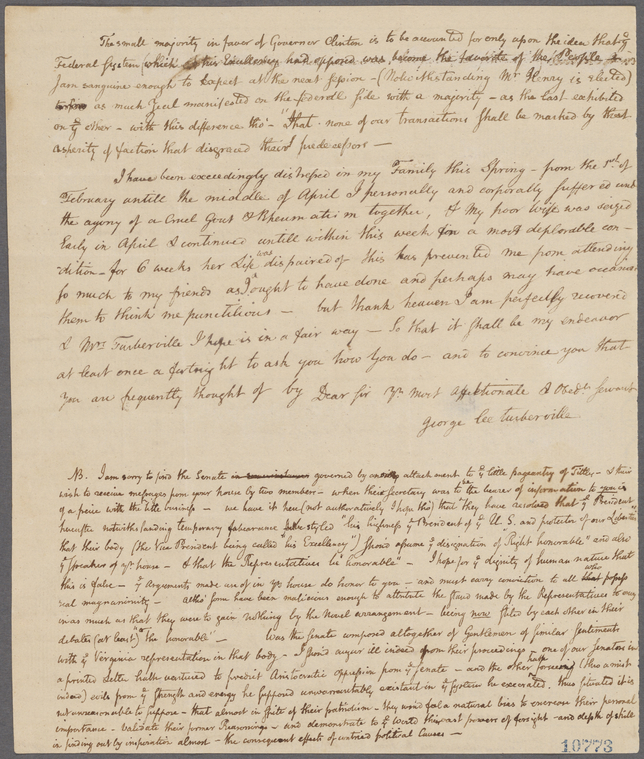 The small majority in favor of Governor Clinton is to be accounted for only upon the idea that ye
Federal System (which his Excellency had opposed was become the favorite of the People
I am sanguine enough to expect at the next session - (Notwithstanding Mr Henry is elected)
as much Zeal manifested on the federall side with a majority - as the last exhibited
on ye other - with this difference tho' - "That none of our transactions shall be marked by that
asperity of faction that disgraced their predecessors -
I have been exceedingly distressed in my Family this Spring - from the 1st of
February untill the middle of April I personally and corporally suffered und
the agony of a Cruel Gout & Rheumatism together, & My poor Wife was seized
Early in April & continued untill within this week in a most deplorable con-
dition - for 6 weeks her Life was dispaired of this has prevented me from attending
so much to my friends as I ought to have done and perhaps may have occasion
them to think me punctitious - but thank heaven I am perfectly recovered
& Mrs Turberville I hope is in a fair way - So that it shall be my endeavor
at least once a fortnight to ask you how You do - and to convince you that
You are frequently thought of by Dear Sir Yr most affectionate & Obedt Servant
George Lee Turberville
NB. I am sorry to find the Senate governed by an attachment to ye little pageantry of Titles - & their
wish to receive messages from your house by two members - when their Secretary was to be the bearer of information to you is
of a piece with the title business - we have it here (not authoratively I hope tho) that they have resolved that ye President
hereafter notwithstanding temporary forbearance be styled "his highness ye President of ye U.S. and protector of our Liberties"
that their body (the Vice President being called "his Excellency") shou'd assume ye designation of Right honorable" and also
ye speaker of yr house - & that the Representatives be "honorable" - I hope for ye dignity of human nature that
this is false - ye Arguments made use of in yr house do honor to you - and must carry conviction to all who
real magnanimity - altho' some have been malicious enough to attribute the stand made by the Representatives to
inasmuch as that they were to gain nothing by the Novel arrangement - being now stiled by each other in their
debates (at least) the honorable" - Was the Senate composed altogether of Gentlemen of similar Sentiments
with ye Virginia representation in that body - I shou'd augur ill indeed from their proceedings - one of our Senators in
a printed letter hath ventured to predict Aristocratic oppression from ye Senate - and the other hath
evils from ye strength and energy he supposed unwarrantably existant in ye System he execrated. thus situated it is
not unreasonable to suppose - that almost in spite of their patriotism - they wou'd feel a natural bias to encrease their personal
importance - validate their former Reasonings - and demonstrate to ye World their vast powers of foresight - and depth of skill
in finding out by inspiration almost - the consequent effects of untried political causes -
10773